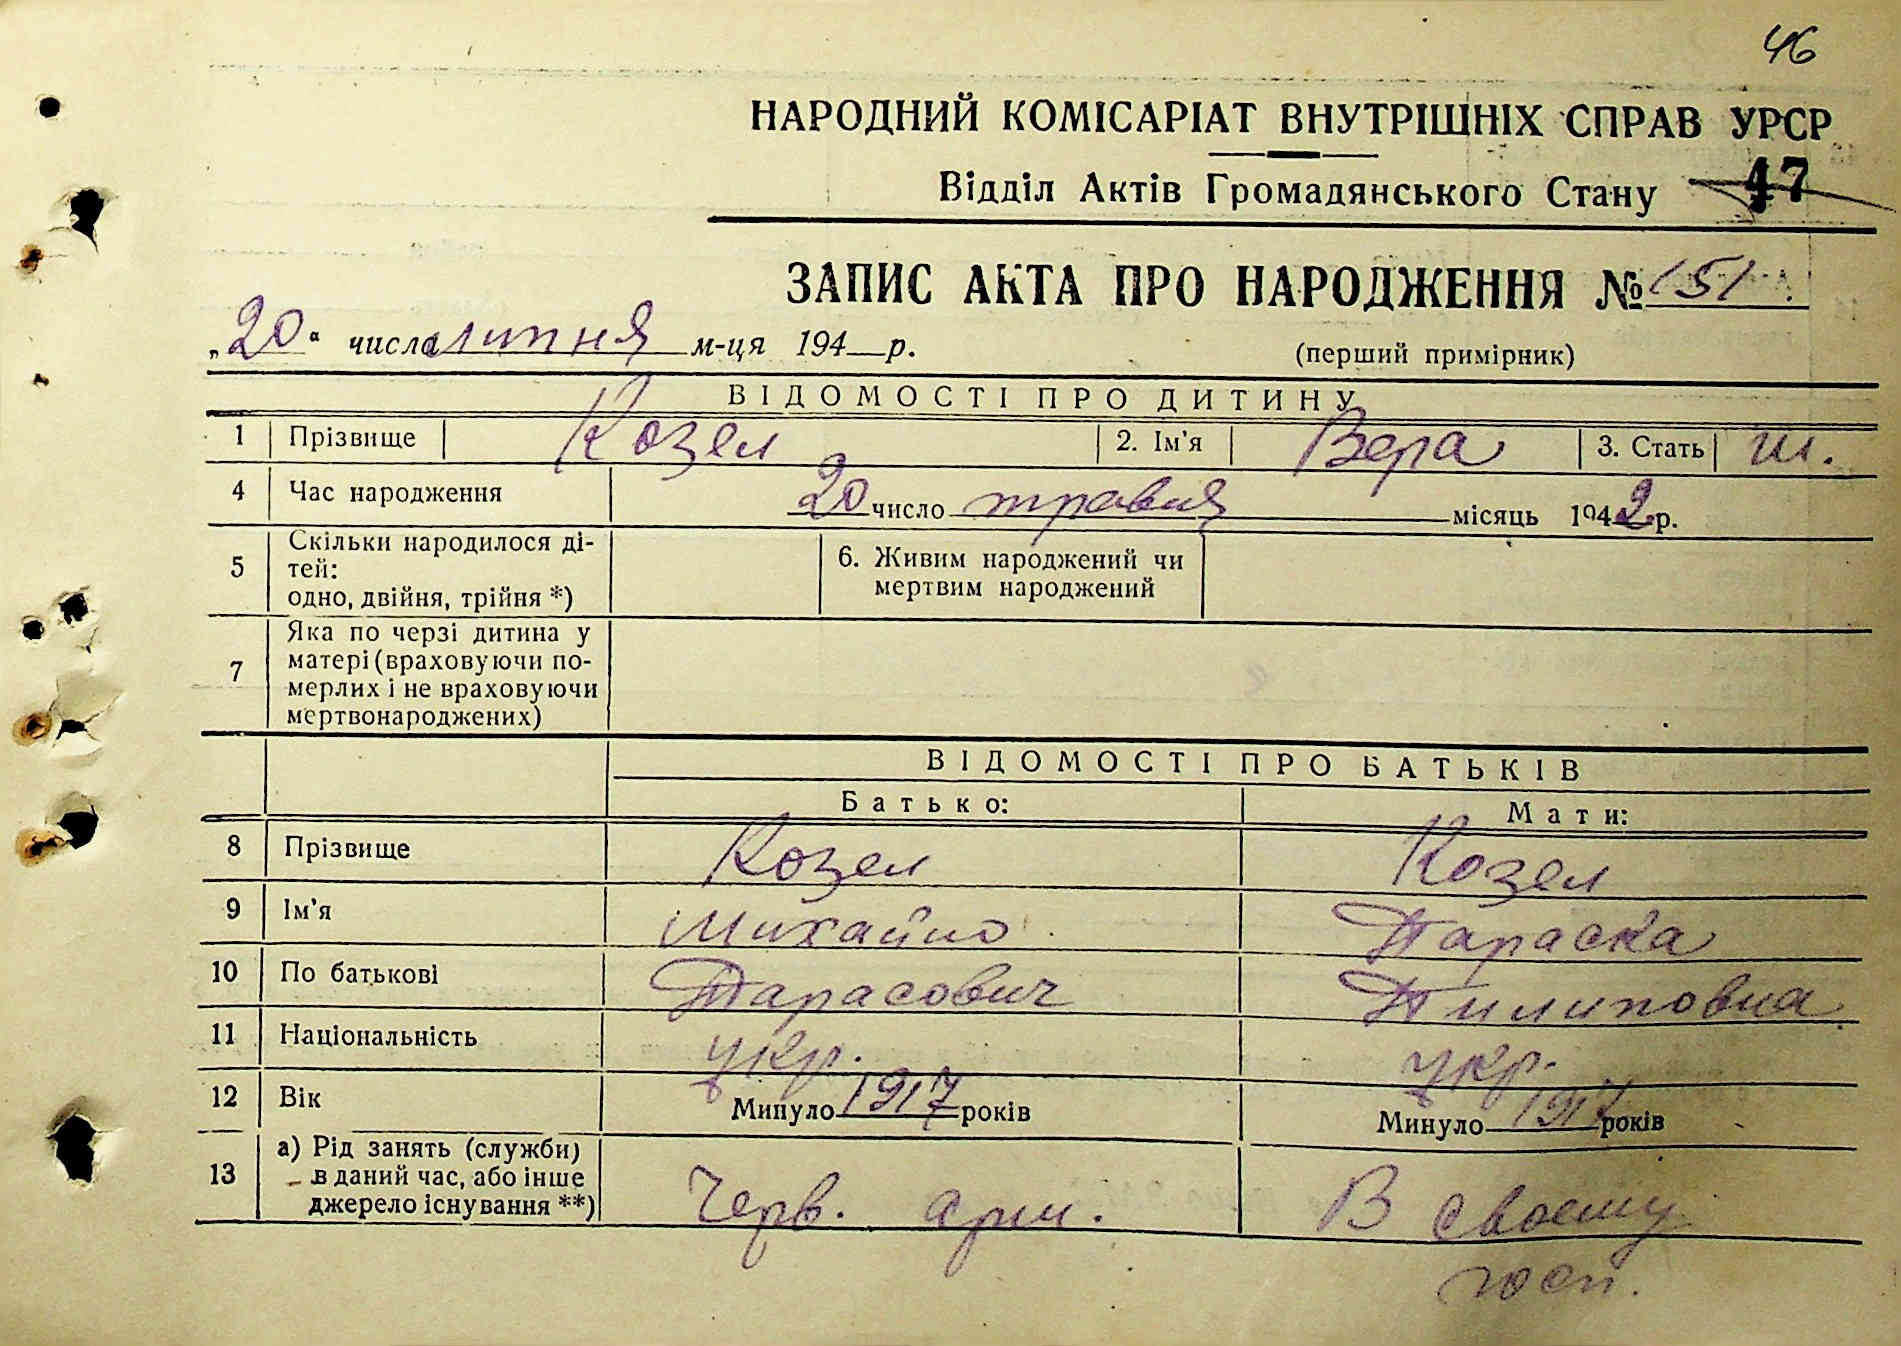 46
НАРОДНИЙ КОМІСАРІАТ ВНУТРІШНІХ СПРАВ УРСР
Відділ Актів Громадянського Стану 47
ЗАПИС АКТА ПРО НАРОДЖЕННЯ № 151
„20“ числа липня м-ця 194 р. (перший примірник)
ВІДОМОСТІ ПРО ДИТИНУ
1 Прізвище Козел 2. Ім'я Вера 3. Стать ж.
4 Час народження 20 число травня місяць 1942 р.
5 Скільки народилося ді-
тей:
одно, двійня, трійня *)
6. Живим народжений чи
мертвим народжений
7 Яка по черзі дитина у
матері (враховуючи по-
мерлих і не враховуючи
мертвонароджених)
ВІДОМОСТІ ПРО БАТЬКІВ
Батько: Мати:
8 Прізвище Козел Козел
9 Ім'я Михайло Параска
10 По батькові Тарасович Пилиповна
11 Національність укр. укр.
12 Вік Минуло 1917 років Минуло 1917 років
13 а) Рід занять (служби)
в даний час, або інше
джерело існування **)
Черв. арм. В своему
госп.